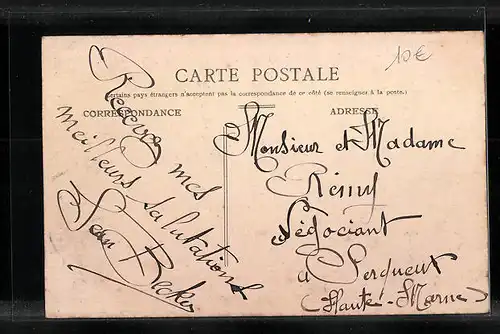 10€
CARTE POSTALE
Certains pays étrangers n'acceptent pas la correspondance de ce côté (se renseignes à la poste.)
CORRESPONDANCE
ADRESSE
Recevez mes
meilleurs salutations
Jean Becker
Monsieur et Madame
Rémy
Négociant
à Serqueux
(Haute-Marne)